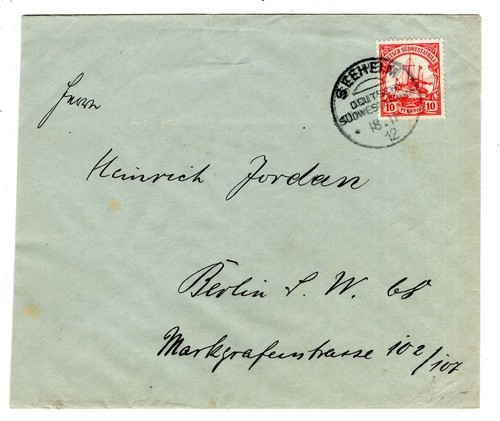 DEUTSCH-SÜDWESTAFRIKA
10 PFENNIG 10
SEEHEIM
DEUTSCH
SÜDWEST
* 18.11
12
Herrn
Heinrich Jordan
Berlin S. W. 68
Markgrafenstrasse 102/107